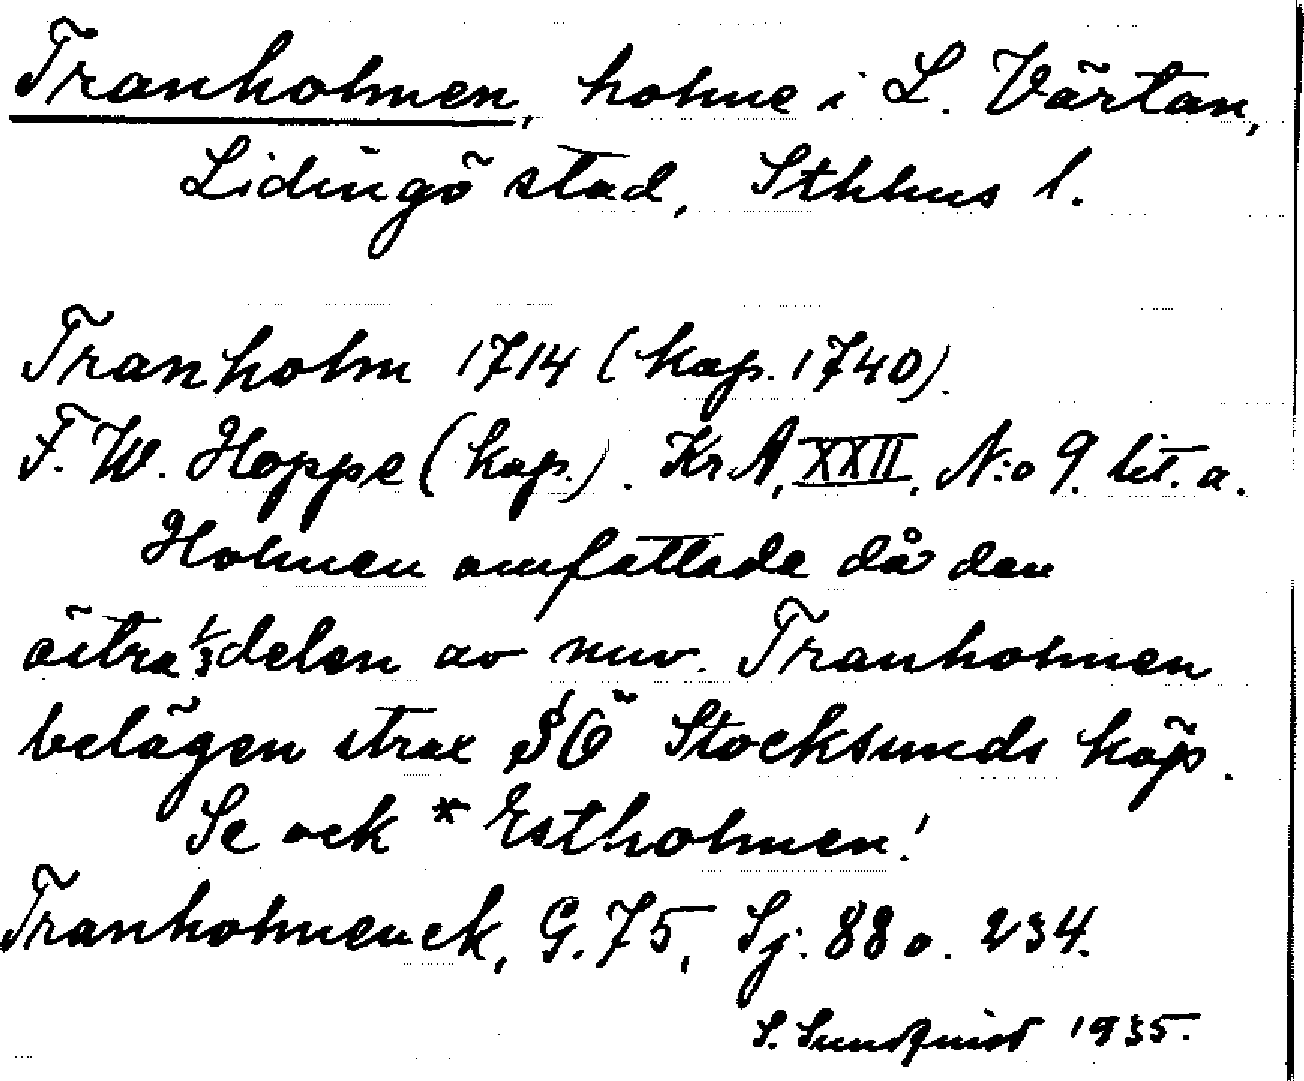 Tranholmen, holme i L. Värtan,
Lidingö stad, Sthlms l.
Tranholm 1714 (kop. 1740).
F. W. Hoppe (kop.). KrA, XXII, N:o 9. lit. a.
Holmen omfattade då den
östra 1/3 delen av nuv. Tranholmen
belägen strax SÖ Stocksunds köp.
Se ock * Estholmen!
Tranholmen ek, G. 75, Sj. 88 o. 234.
S. Sundquist 1935.